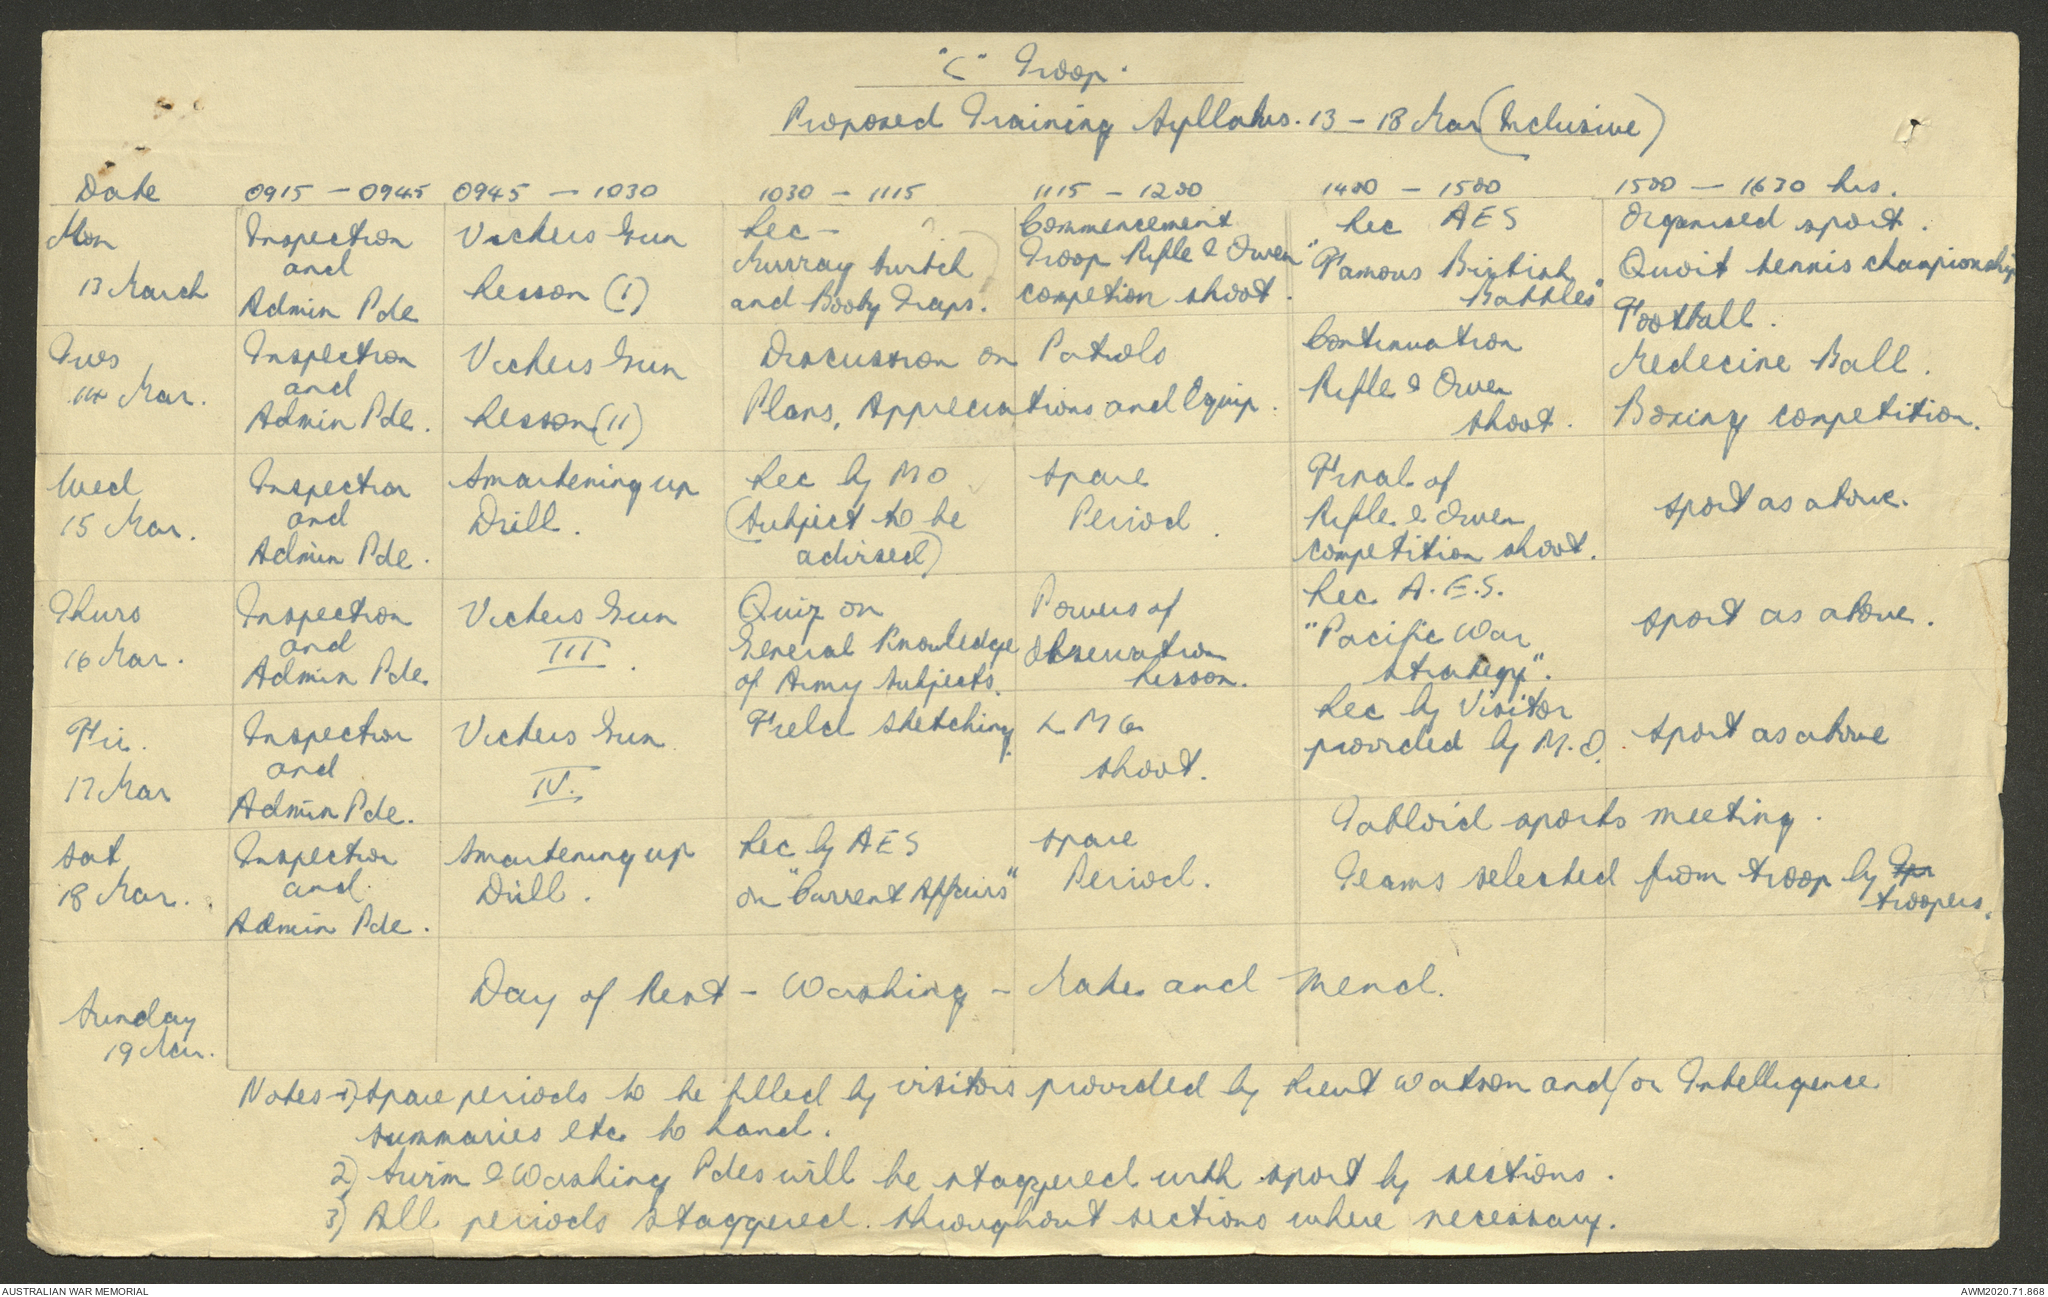 "C" Troop.
Proposed Training Syllabus. 13 - 18 Mar (Inclusive)
Date 0915 - 0945 0945 - 1030 1030 - 1115 1115 - 1200 1400 - 1500 1500 - 1630 hrs.
Mon
13 March
Inspection
and
Admin Pde
Vickers Gun
Lesson (I)
Lec -
Murray Switch
and Booby Traps.
Commencement
Troop Rifle & Owen
competion shoot.
Lec AES
"Famous British
Battles"
Organised sport.
Quoit tennis championship
Football.
Tues
14 Mar.
Inspection
and
Admin Pde.
Vickers Gun
Lesson (II)
Discussion on Patrols
Plans, Appreciations and Equip.
Continuation
Rifle & Owen
shoot.
Medecine Ball.
Boxing competition.
Wed
15 Mar.
Inspection
and
Admin Pde.
Smartening up
Drill.
Lec by MO
(Subject to be
advised)
Spare
Period.
Final of
Rifle & Owen
competition shoot.
Sport as above.
Thurs
16 Mar.
Inspection
and
Admin Pde.
Vickers Gun
III.
Quiz on
General Knowledge
of Army Subjects.
Powers of
Observation
Lesson.
Lec A.E.S.
"Pacific War
strategy".
Sport as above.
Fri.
17 Mar
Inspection
and
Admin Pde.
Vickers Gun
IV.
Field sketching.
LMG
shoot.
Lec by Visitor
provided by M.O.
Sport as above
Sat
18 Mar.
Inspection
and
Admin Pde.
Smartening up
Drill.
Lec by AES
on "Current Affairs"
Spare
Period.
Tabloid sports meeting.
Teams selected from troop by Tpr
troopers.
Sunday
19 Mar.
Day of Rest - Washing - Make and Mend.
Notes - 1) Spare periods to be filled by visitors provided by Lieut Watson and/or Intelligence
summaries etc to hand.
2) Swim & Washing Pdes will be staggered with sport by sections.
3) All periods staggered throughout sections where necessary.
AUSTRALIAN WAR MEMORIAL
AWM2020.71.868